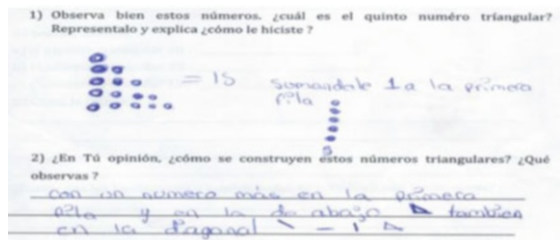 1) Observa bien estos números. ¿cuál es el quinto numéro triangular?
Representalo y explica ¿cómo le hiciste ?
= 15 sumandole 1 a la primera
fila
5
2) ¿En Tú opinión, ¿cómo se construyen estos números triangulares? ¿Qué
observas ?
con un numero más en la primera
fila y en la de abajo también
en la diagonal